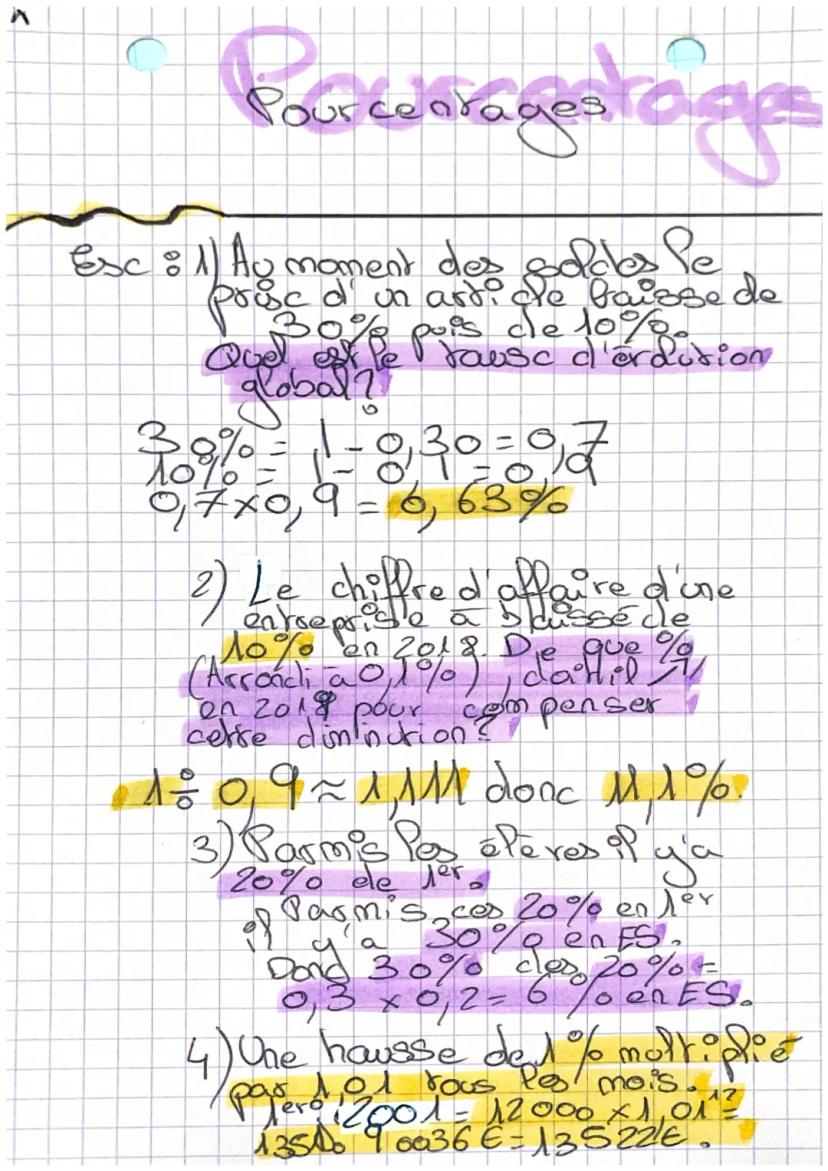 Pourcentages
Pourcentages
Esc : 1) Au moment des soldes le
prisc d'un article baisse de
30% puis de 10%.
Quel est le tausc d'évolution
global ?
30% = 1 - 0,30 = 0,7
10% = 1 - 0,1 = 0,9
0,7 x 0,9 = 0,63%
2) Le chiffre d'affaire d'une
entreprise à baissé de
10% en 2018. De que %
(Arrondi à 0,1%), doit-il ↗
en 2019 pour compenser
cette diminution ?
1 ÷ 0,9 ≈ 1,111 donc 11,1%.
3) Parmis les élèves il y'a
20% de 1er.
Parmis ces 20% en 1er
il y'a 30% en ES.
Donc 30% des 20% =
0,3 x 0,2 = 6% en ES.
4) Une hausse de 1% multiplié
par 1,01 tous les mois.
1er 12000 x 1,01¹² =
= 13522€.